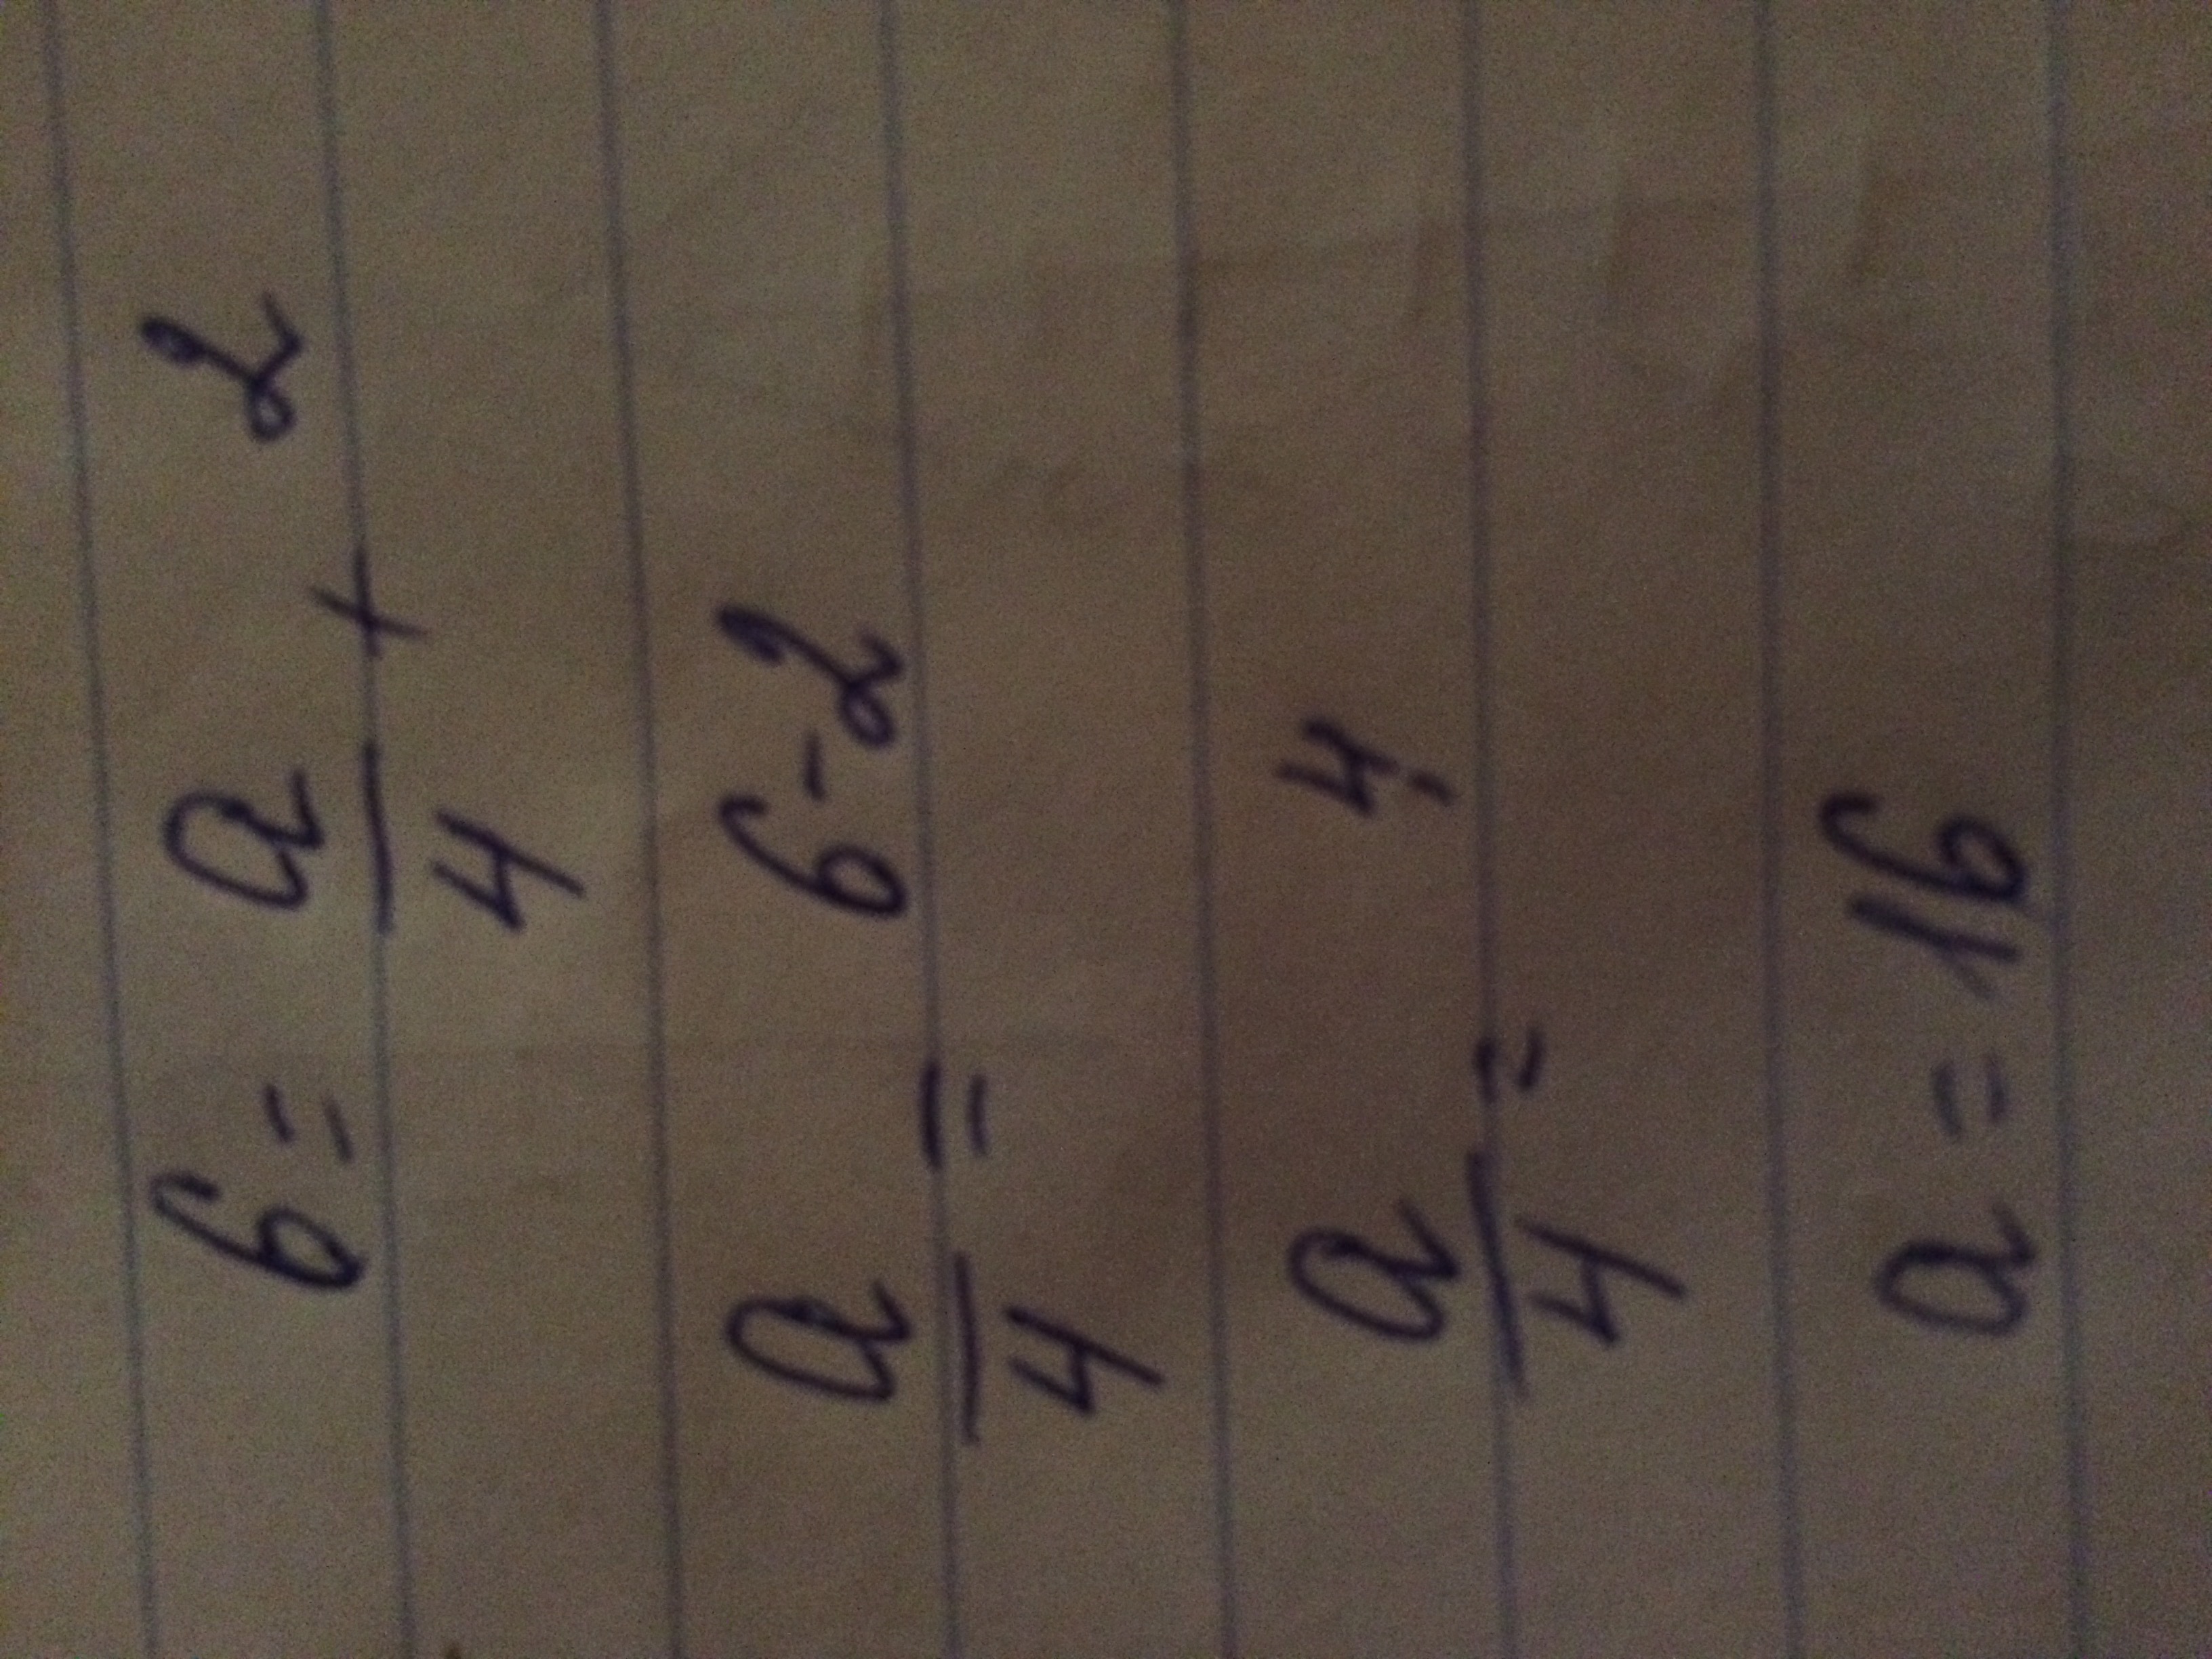 6 = a/4 + 2
a/4 = 6-2
a/4 = 4
a = 16